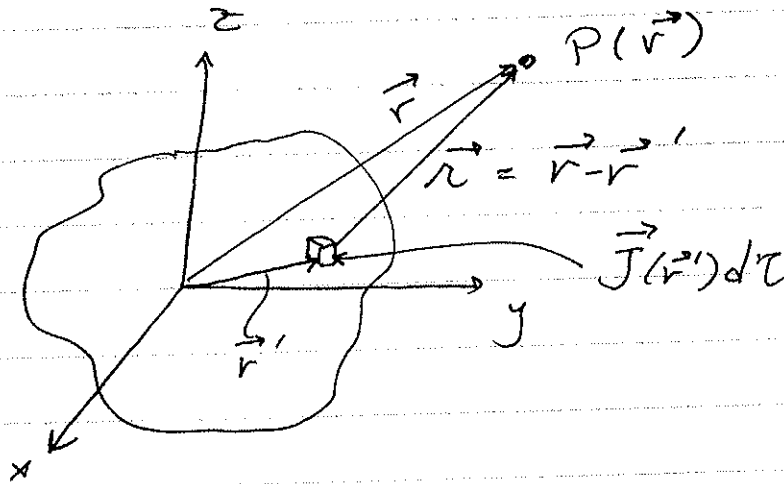 z
P(r⃗)
r⃗
𝓇⃗ = r⃗ - r⃗ '
J⃗(r⃗ ')dτ
y
r⃗ '
x